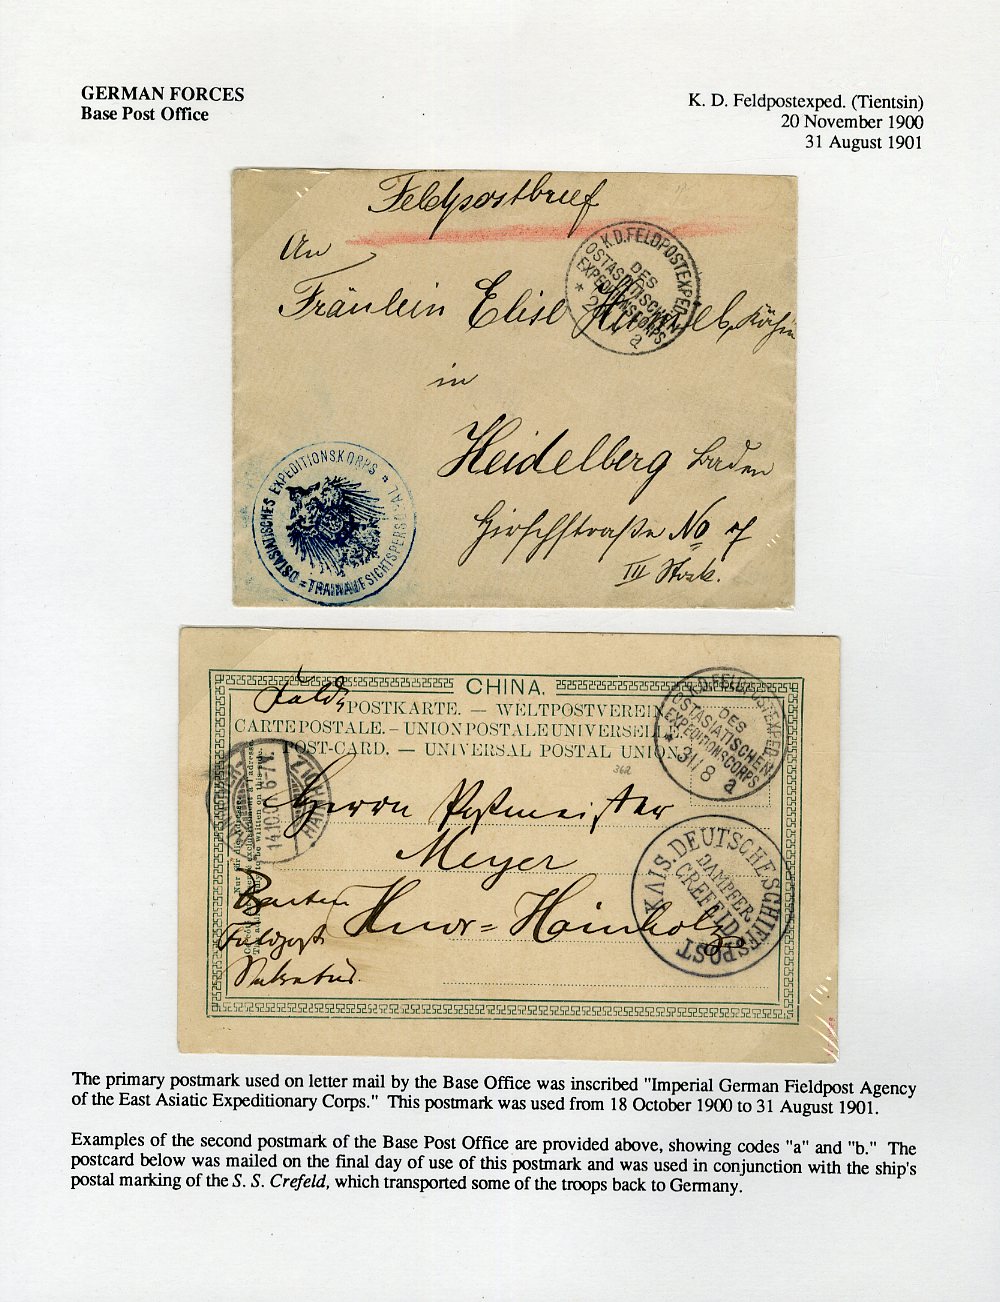 GERMAN FORCES
Base Post Office
K. D. Feldpostexped. (Tientsin)
20 November 1900
31 August 1901
Feldpostbrief
An
Fräulein Elise
in
Heidelberg Baden
Hirschstraße No 7
III Stock.
K.D.FELDPOSTEXPED.
DES
OSTASIATISCHEN
EXPEDITIONSCORPS
* a
OSTASIATISCHES EXPEDITIONSKORPS =
= TRAINAUFSICHTSPERSONAL
CHINA.
POSTKARTE. — WELTPOSTVEREIN
CARTE POSTALE. – UNION POSTALE UNIVERSEL
POST-CARD. — UNIVERSAL POSTAL UNION
362
Herrn Postmeister
Meyer
Hnvr=Hainholz
Feldpost
K.D.FELDPOSTEXPED.
DES
OSTASIATISCHEN
EXPEDITIONSCORPS
* 31/8 a
14.10.01. 6-7 N.
KAIS. DEUTSCHE SCHIFFSPOST
DAMPFER
CREFELD
The primary postmark used on letter mail by the Base Office was inscribed "Imperial German Fieldpost Agency
of the East Asiatic Expeditionary Corps." This postmark was used from 18 October 1900 to 31 August 1901.
Examples of the second postmark of the Base Post Office are provided above, showing codes "a" and "b." The
postcard below was mailed on the final day of use of this postmark and was used in conjunction with the ship's
postal marking of the S. S. Crefeld, which transported some of the troops back to Germany.